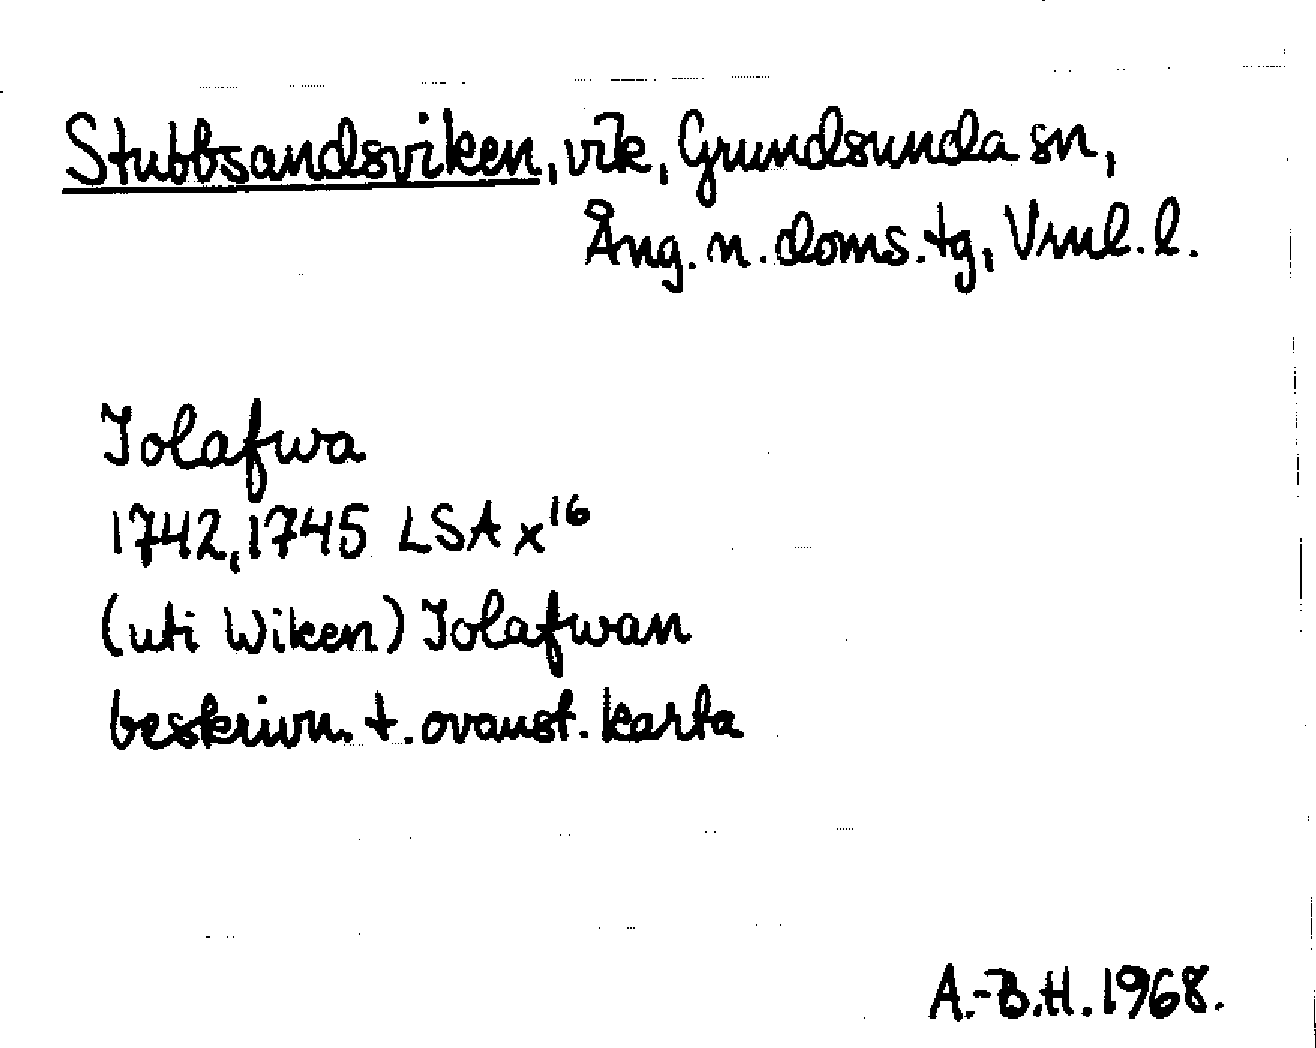 Stubbsandsviken, vik, Grundsunda sn,
Ång. n. doms. tg, Vrnl. l.
Iolafwa
1742, 1745 LSA x16
(uti Wiken) Iolafwan
beskrivn. t. ovanst. karta
A.-B.H. 1968.